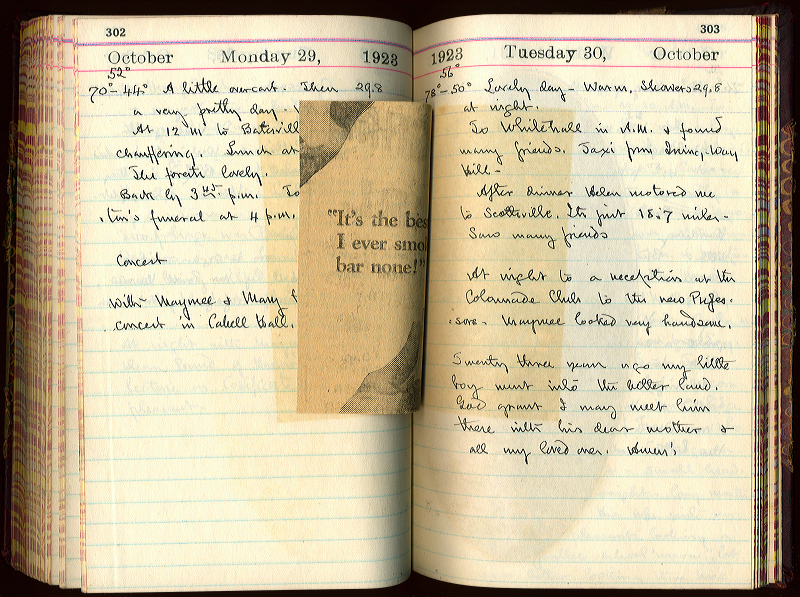 302
October Monday 29, 1923
52°
70°–44° A little overcast. Then 29.8
a very pretty day.
At 12 m to Batesvill
chauffering. Lunch at
The forests lovely.
Back by 3 p.m. To
's funeral at 4 p.m.
Concert
With Maymee & Mary
concert in Cabell Hall.
"It's the bes
I ever smo
bar none!"
303
1923 Tuesday 30, October
56°
78°–50° Lovely day – Warm, Showers 29.8
at night.
To Whitehall in A.M. & found
many friends. Taxi from
Hill –
After dinner Helen motored me
to Scottsville. Its just 18.7 miles –
Saw many friends
At night to a reception at the
Colonnade Club to the new Profes-
sors. Maymee looked very handsome.
Twenty three years ago my little
boy went into the better land.
God grant I may meet him
there with his dear mother &
all my loved ones.